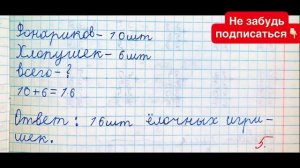 Не забудь
подписаться👇
Фонариков - 10шт
Хлопушек - 6шт
Всего - ?
10+6=16
Ответ: 16шт ёлочных игру-
шек.
5.